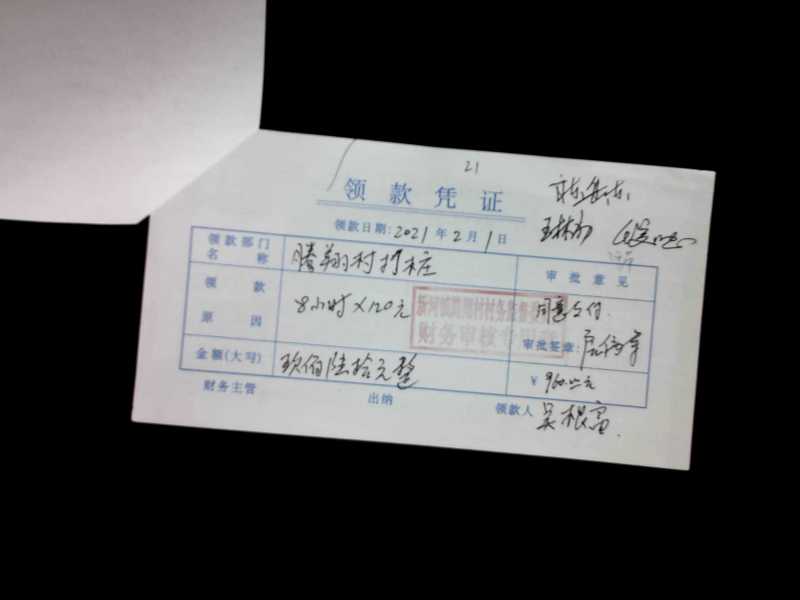 21
领款凭证
领款日期:2021年2月1日
领款部门名称
腾翔村打桩
审批意见
领款原因
8小时×120元
同意支付
财务审核专用章
审批签章:
金额(大写)
玖佰陆拾元整
¥ 960.00元
财务主管
出纳
领款人
吴根富